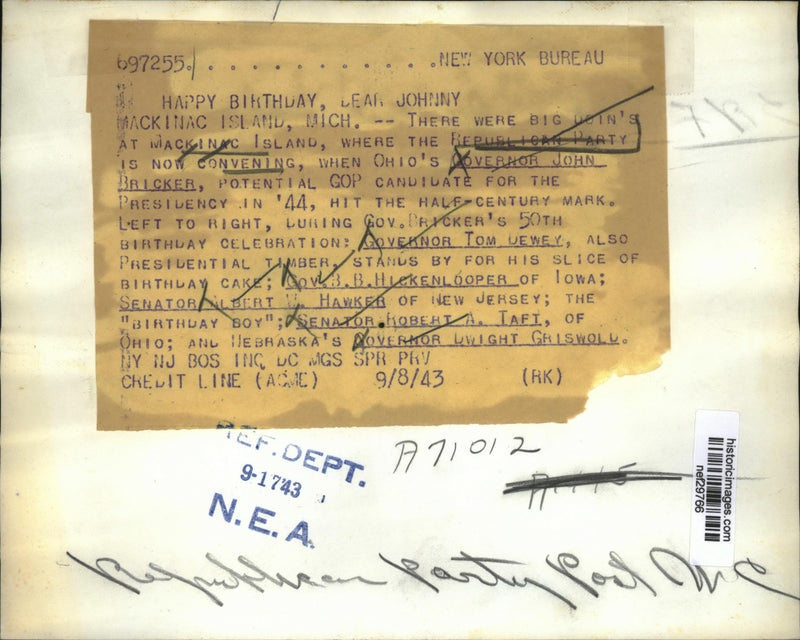 697255. . . . . . . . . . . . .NEW YORK BUREAU
HAPPY BIRTHDAY, DEAR JOHNNY
MACKINAC ISLAND, MICH. -- THERE WERE BIG DOIN'S
AT MACKINAC ISLAND, WHERE THE REPUBLICAN PARTY
IS NOW CONVENING, WHEN OHIO'S GOVERNOR JOHN
BRICKER, POTENTIAL GOP CANDIDATE FOR THE
PRESIDENCY IN '44, HIT THE HALF-CENTURY MARK.
LEFT TO RIGHT, DURING GOV.BRICKER'S 50TH
BIRTHDAY CELEBRATION: GOVERNOR TOM DEWEY, ALSO
PRESIDENTIAL TIMBER, STANDS BY FOR HIS SLICE OF
BIRTHDAY CAKE; GOV.B.B.HICKENLOOPER OF IOWA;
SENATOR ALBERT W. HAWKER OF NEW JERSEY; THE
"BIRTHDAY BOY"; SENATOR ROBERT A. TAFT, OF
OHIO; AND NEBRASKA'S GOVERNOR DWIGHT GRISWOLD.
NY NJ BOS INQ DC MGS SPR PRV
CREDIT LINE (ACME) 9/8/43 (RK)
REF. DEPT.
9-1743
N.E.A.
A71012
historicimages.com
nef29766
Republican Party Post